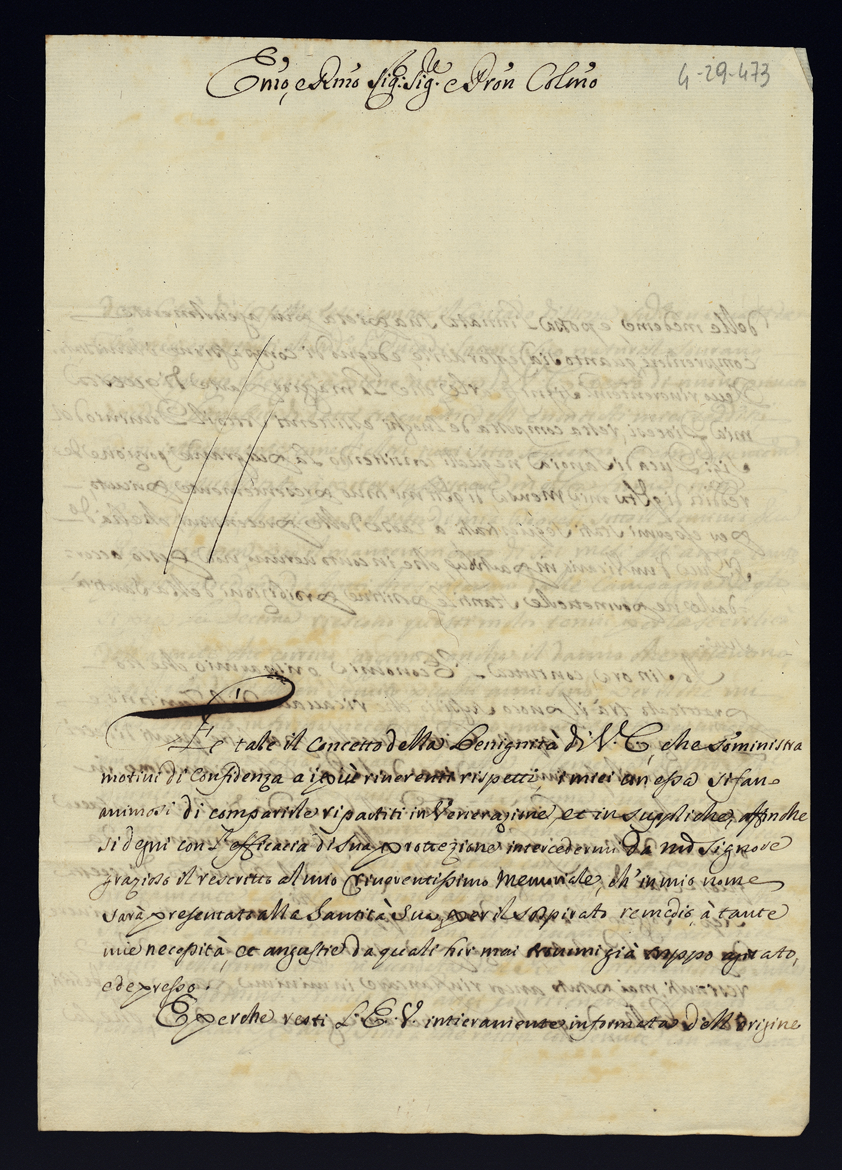 Em̃o, e Rm̃o Sig: Sig.re e Pron̄ Colm̃o
4-29-473
E' tale il Concetto della Benignità di V. E, che som̃inistra
motivi di Confidenza a i più riverenti rispetti, i miei in essa si fan-
animosi di comparirle ripartiti in Venerazione, et in suppliche, affinche
si degni con l'efficacia di sua protezzione intercedermi da Signore
grazioso il rescritto al mio riverentissimo Memoriale, ch' in mio nome
sarà presentato alla Santità Sua per il sospirato remedio, à tante
mie necessità, et angustie da quali hor mai già
e depresso.
E perche resti L. E. V. intieramente informata dell'origine